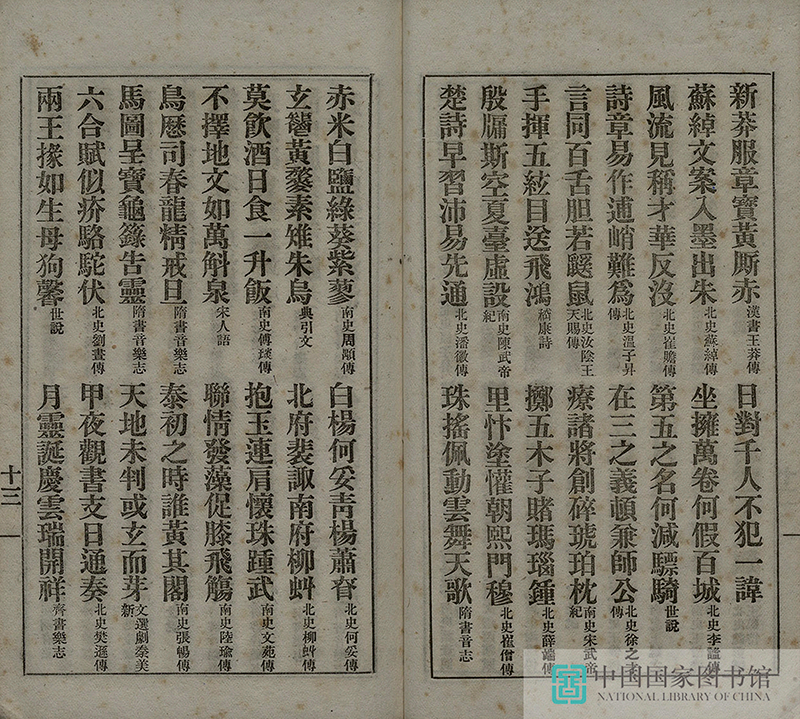 新莽服章寶黃厮赤 漢書王莽傳 日對千人不犯一諱
蘇綽文案入墨出朱 北史蘇綽傳 坐擁萬卷何假百城 北史李謐傳
風流見稱才華反沒 北史崔贍傳 第五之名何減驃騎 世說
詩章易作逋峭難爲 北史溫子昇傳 在三之義頓兼師公 北史徐之才傳
言同百舌胆若鼷鼠 北史汝陰王天賜傳 療諸將創碎琥珀枕 南史宋武帝紀
手揮五絃目送飛鴻 嵇康詩 擲五木子賭瑪瑙鍾 北史薛端傳
殷牖斯空夏臺虛設 南史陳武帝紀 里忭塗懽朝熙門穆 北史崔僧傳
楚詩早習沛易先通 北史潘徽傳 珠搖佩動雲舞天歌 隋書音志
赤米白鹽綠葵紫蓼 南史周顒傳 白楊何妥青楊蕭眘 北史何妥傳
玄秬黃麰素雉朱烏 典引文 北府裴諏南府柳虯 北史柳虯傳
莫飲酒日食一升飯 南史傅琰傳 抱玉連肩懷珠踵武 南史文苑傳
不擇地文如萬斛泉 宋人語 聯情發藻促膝飛觴 南史陸瑜傳
鳥歷司春龍精戒旦 隋書音樂志 泰初之時誰黃其閣 南史張暢傳
馬圖呈寶龜籙告靈 隋書音樂志 天地未判或玄而芽 文選劇秦美新
六合賦似疥駱駝伏 北史劉晝傳 甲夜觀書支日通奏 北史樊遜傳
兩王掾如生母狗馨 世說 月靈誕慶雲瑞開祥 齊書樂志
十三
中国国家图书馆
NATIONAL LIBRARY OF CHINA